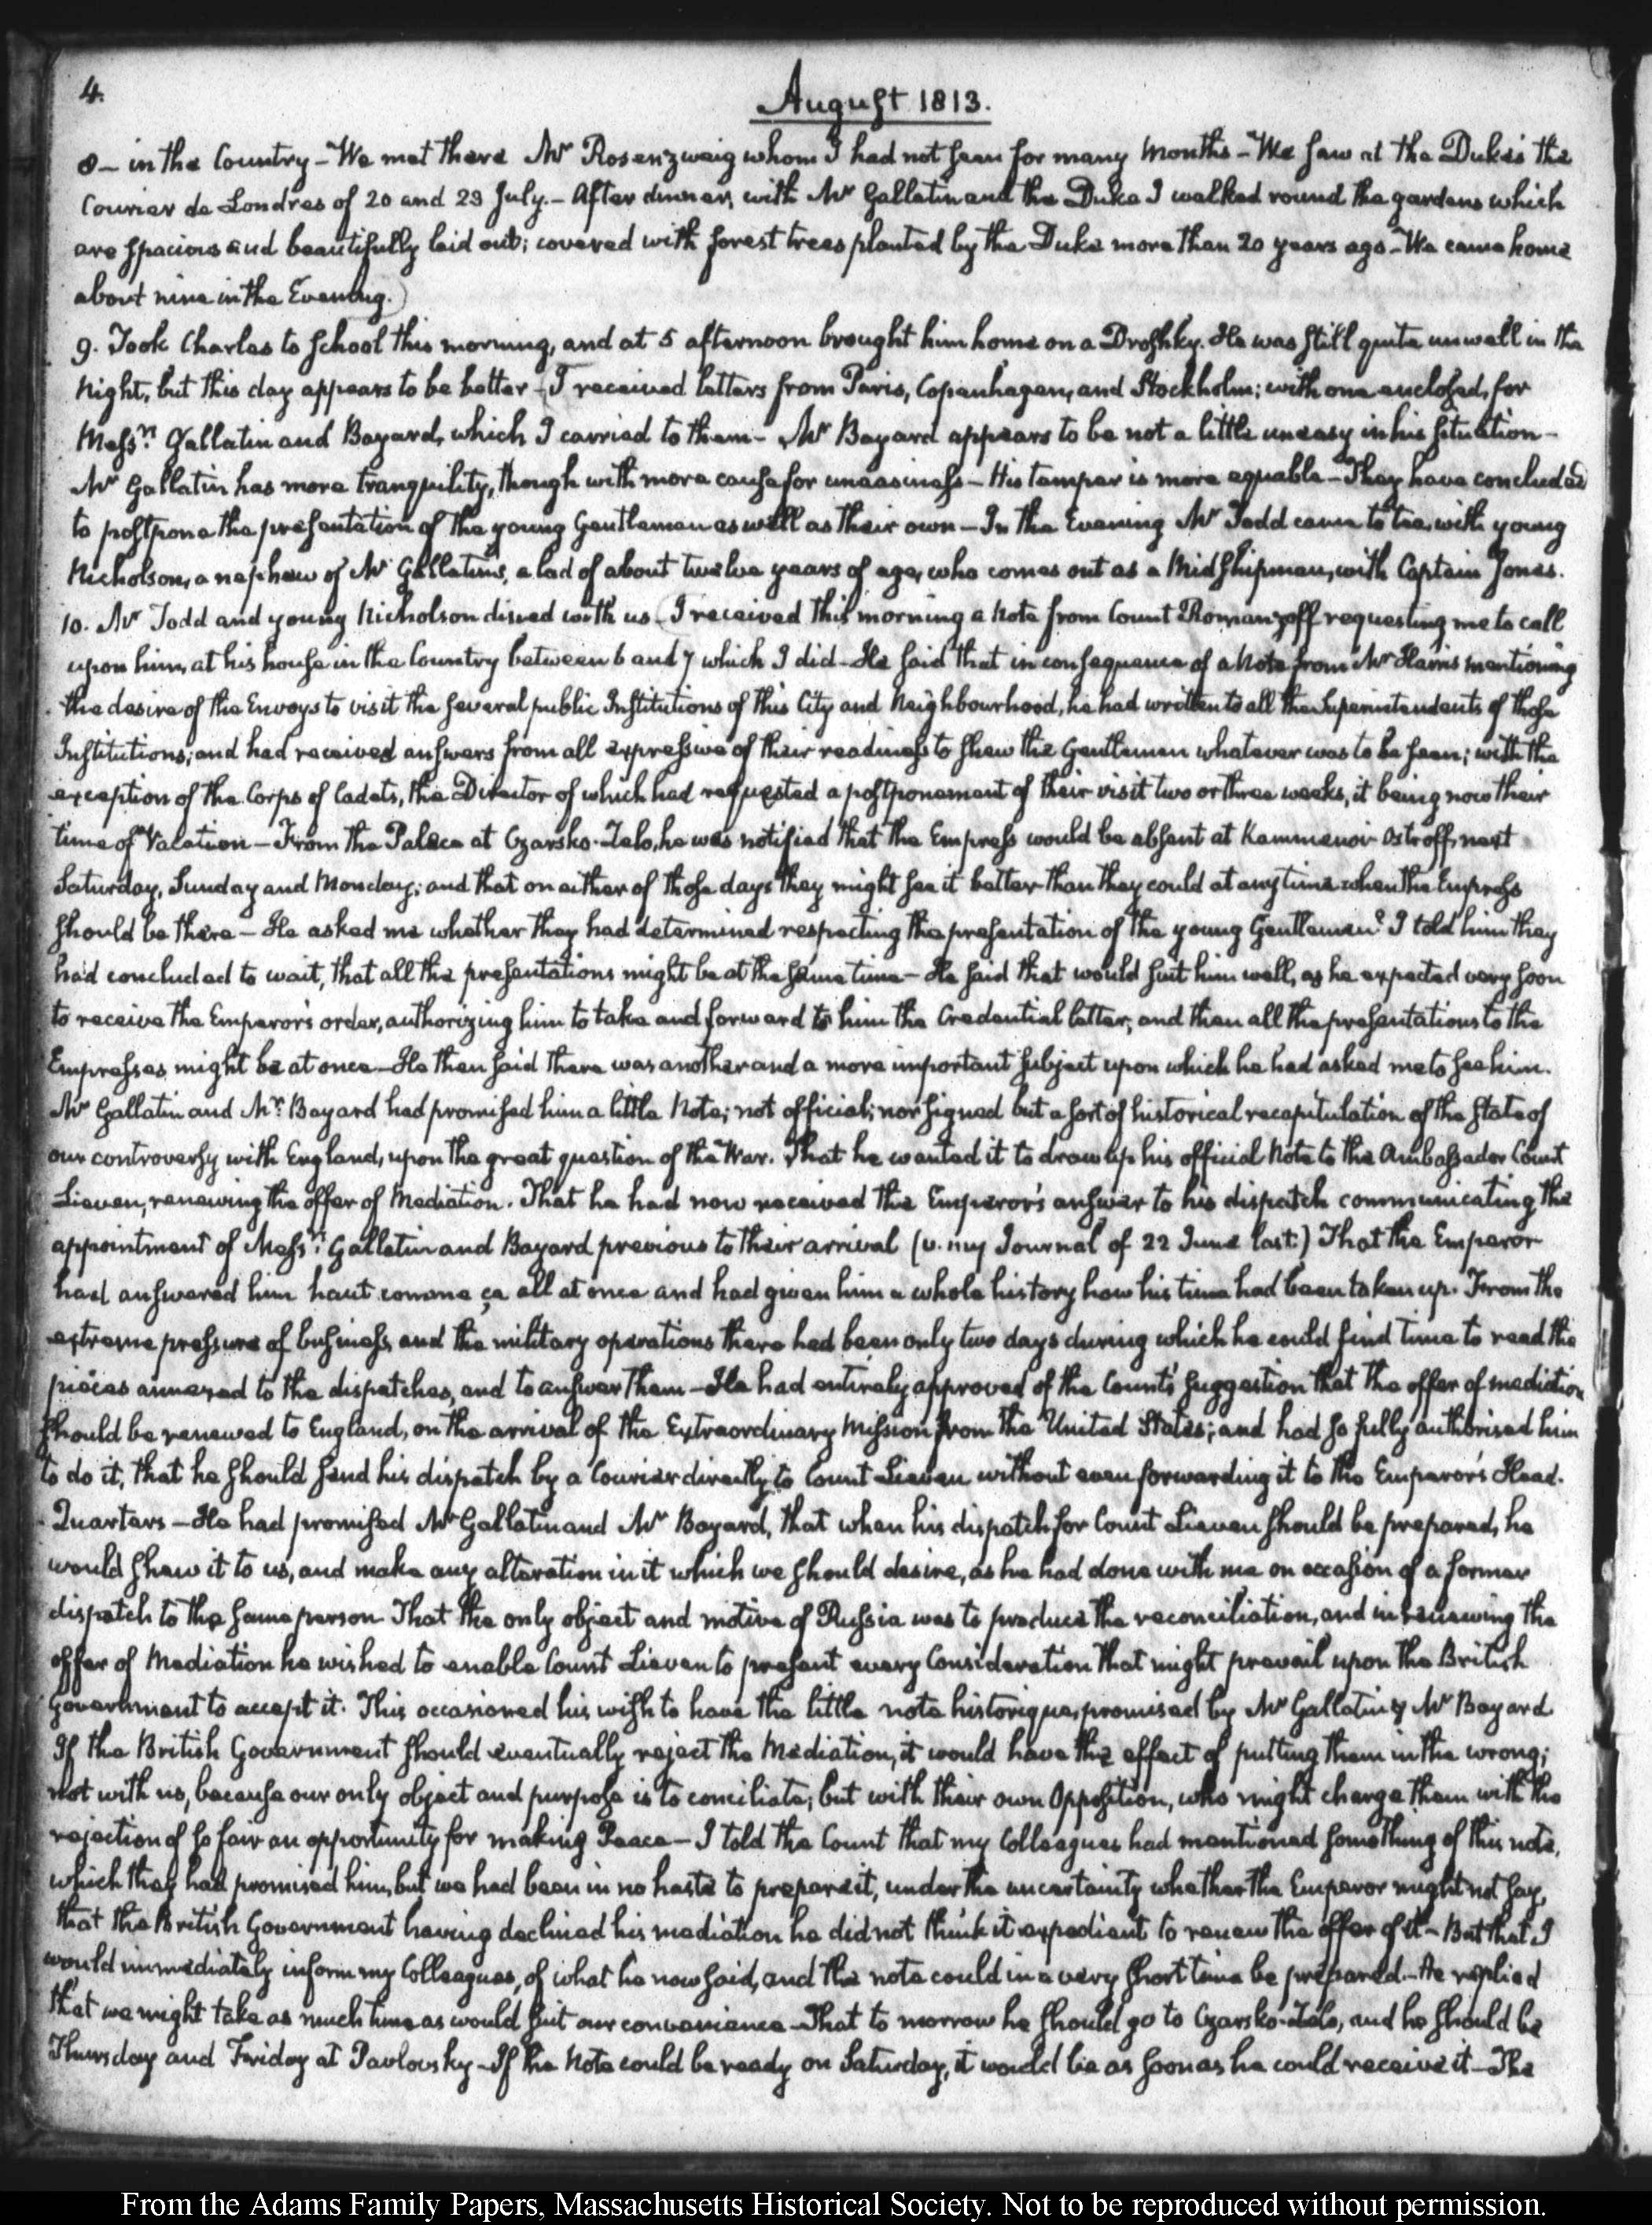 4.
August 1813.
8 – in the Country – We met there Mr Rosenzweig whom I had not seen for many Months – We saw at the Duke's the
Courier de Londres of 20 and 23 July. – After dinner, with Mr Gallatin and the Duke I walked round the gardens which
are spacious and beautifully laid out; covered with forest trees planted by the Duke more than 20 years ago – We came home
about nine in the Evening.)
9. Took Charles to School this morning, and at 5 afternoon brought him home on a Droshky. He was still quite unwell in the
Night, but this day appears to be better – I received letters from Paris, Copenhagen, and Stockholm; with one enclosed, for
Messrs. Gallatin and Bayard, which I carried to them – Mr Bayard appears to be not a little uneasy in his situation –
Mr Gallatin has more tranquility, though with more cause for uneasiness – His temper is more equable – They have concluded
to postpone the presentation of the young Gentlemen as well as their own – In the Evening Mr Todd came to tea, with young
Nicholson, a nephew of Mr Gallatin's, a lad of about twelve years of age, who comes out as a Midshipman, with Captain Jones.
10. Mr Todd and young Nicholson dined with us (I received this morning a Note from Count Romanzoff requesting me to call
upon him, at his house in the Country between 6 and 7 which I did – He said that in consequence of a Note from Mr Harris mentioning
the desire of the Envoys to visit the several public Institutions of this City and Neighbourhood, he had written to all the Superintendents of those
Institutions; and had received answers from all expressive of their readiness to shew the Gentlemen whatever was to be seen; with the
exception of the Corps of Cadets, the Director of which had requested a postponement of their visit two or three weeks, it being now their
time of Vacation – From the Palace at Czarsko-Zelo, he was notified that the Empress would be absent at Kammenoi Ostroff, next
Saturday, Sunday and Monday; and that on either of those days they might see it better than they could at any time when the Empress
should be there – He asked me whether they had determined respecting the presentation of the young Gentlemen? I told him they
had concluded to wait, that all the presentations might be at the same time – He said that would suit him well, as he expected very soon
to receive the Emperor's order, authorizing him to take and forward to him the Credential letter, and then all the presentations to the
Empresses might be at once – He then said there was another and a more important subject upon which he had asked me to see him.
Mr Gallatin and Mr. Bayard had promised him a little Note; not official; nor signed but a sort of historical recapitulation of the State of
our controversy with England, upon the great question of the War. That he wanted it to draw up his official Note to the Ambassador Count
Lieven, renewing the offer of Mediation. That he had now received the Emperor's answer to his dispatch communicating the
appointment of Messrs. Gallatin and Bayard previous to their arrival (v. my Journal of 22 June last.) That the Emperor
had answered him haut comme ça all at once and had given him a whole history how his time had been taken up. From the
extreme pressure of business, and the military operations there had been only two days during which he could find time to read the
pieces annexed to the dispatches, and to answer them – He had entirely approved of the Count's suggestion that the offer of mediation
should be renewed to England, on the arrival of the Extraordinary Mission from the United States; and had so fully authorised him
to do it, that he should send his dispatch by a Courier directly to Count Lieven without even forwarding it to the Emperor's Head-
Quarters – He had promised Mr Gallatin and Mr Bayard, that when his dispatch for Count Lieven should be prepared, he
would shew it to us, and make any alteration in it which we should desire, as he had done with me on occasion of a former
dispatch to the same person. That the only object and motive of Russia was to produce the reconciliation, and in renewing the
offer of Mediation he wished to enable Count Lieven to present every Consideration that might prevail upon the British
Government to accept it. This occasioned his wish to have the little note historique, promised by Mr Gallatin & Mr Bayard.
If the British Government should eventually reject the Mediation, it would have the effect of putting them in the wrong;
not with us, because our only object and purpose is to conciliate; but with their own Opposition, who might charge them with the
rejection of so fair an opportunity for making Peace – I told the Count that my Colleagues had mentioned something of this note,
which they had promised him, but we had been in no haste to prepare it, under the uncertainty whether the Emperor might not say,
that the British Government having declined his mediation he did not think it expedient to renew the offer of it – But that I
would immediately inform my Colleagues, of what he now said, and the note could in a very short time be prepared. – He replied
that we might take as much time as would suit our convenience – That to morrow he should go to Czarsko-Zelo, and he should be
Thursday and Friday at Pavlovsky – If the Note could be ready on Saturday, it would be as soon as he could receive it – The
From the Adams Family Papers, Massachusetts Historical Society. Not to be reproduced without permission.